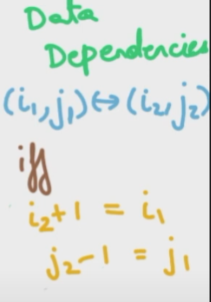 Data
Dependencies
(i₁,j₁)↔(i₂,j₂)
iff
i₂+1 = i₁
j₂-1 = j₁